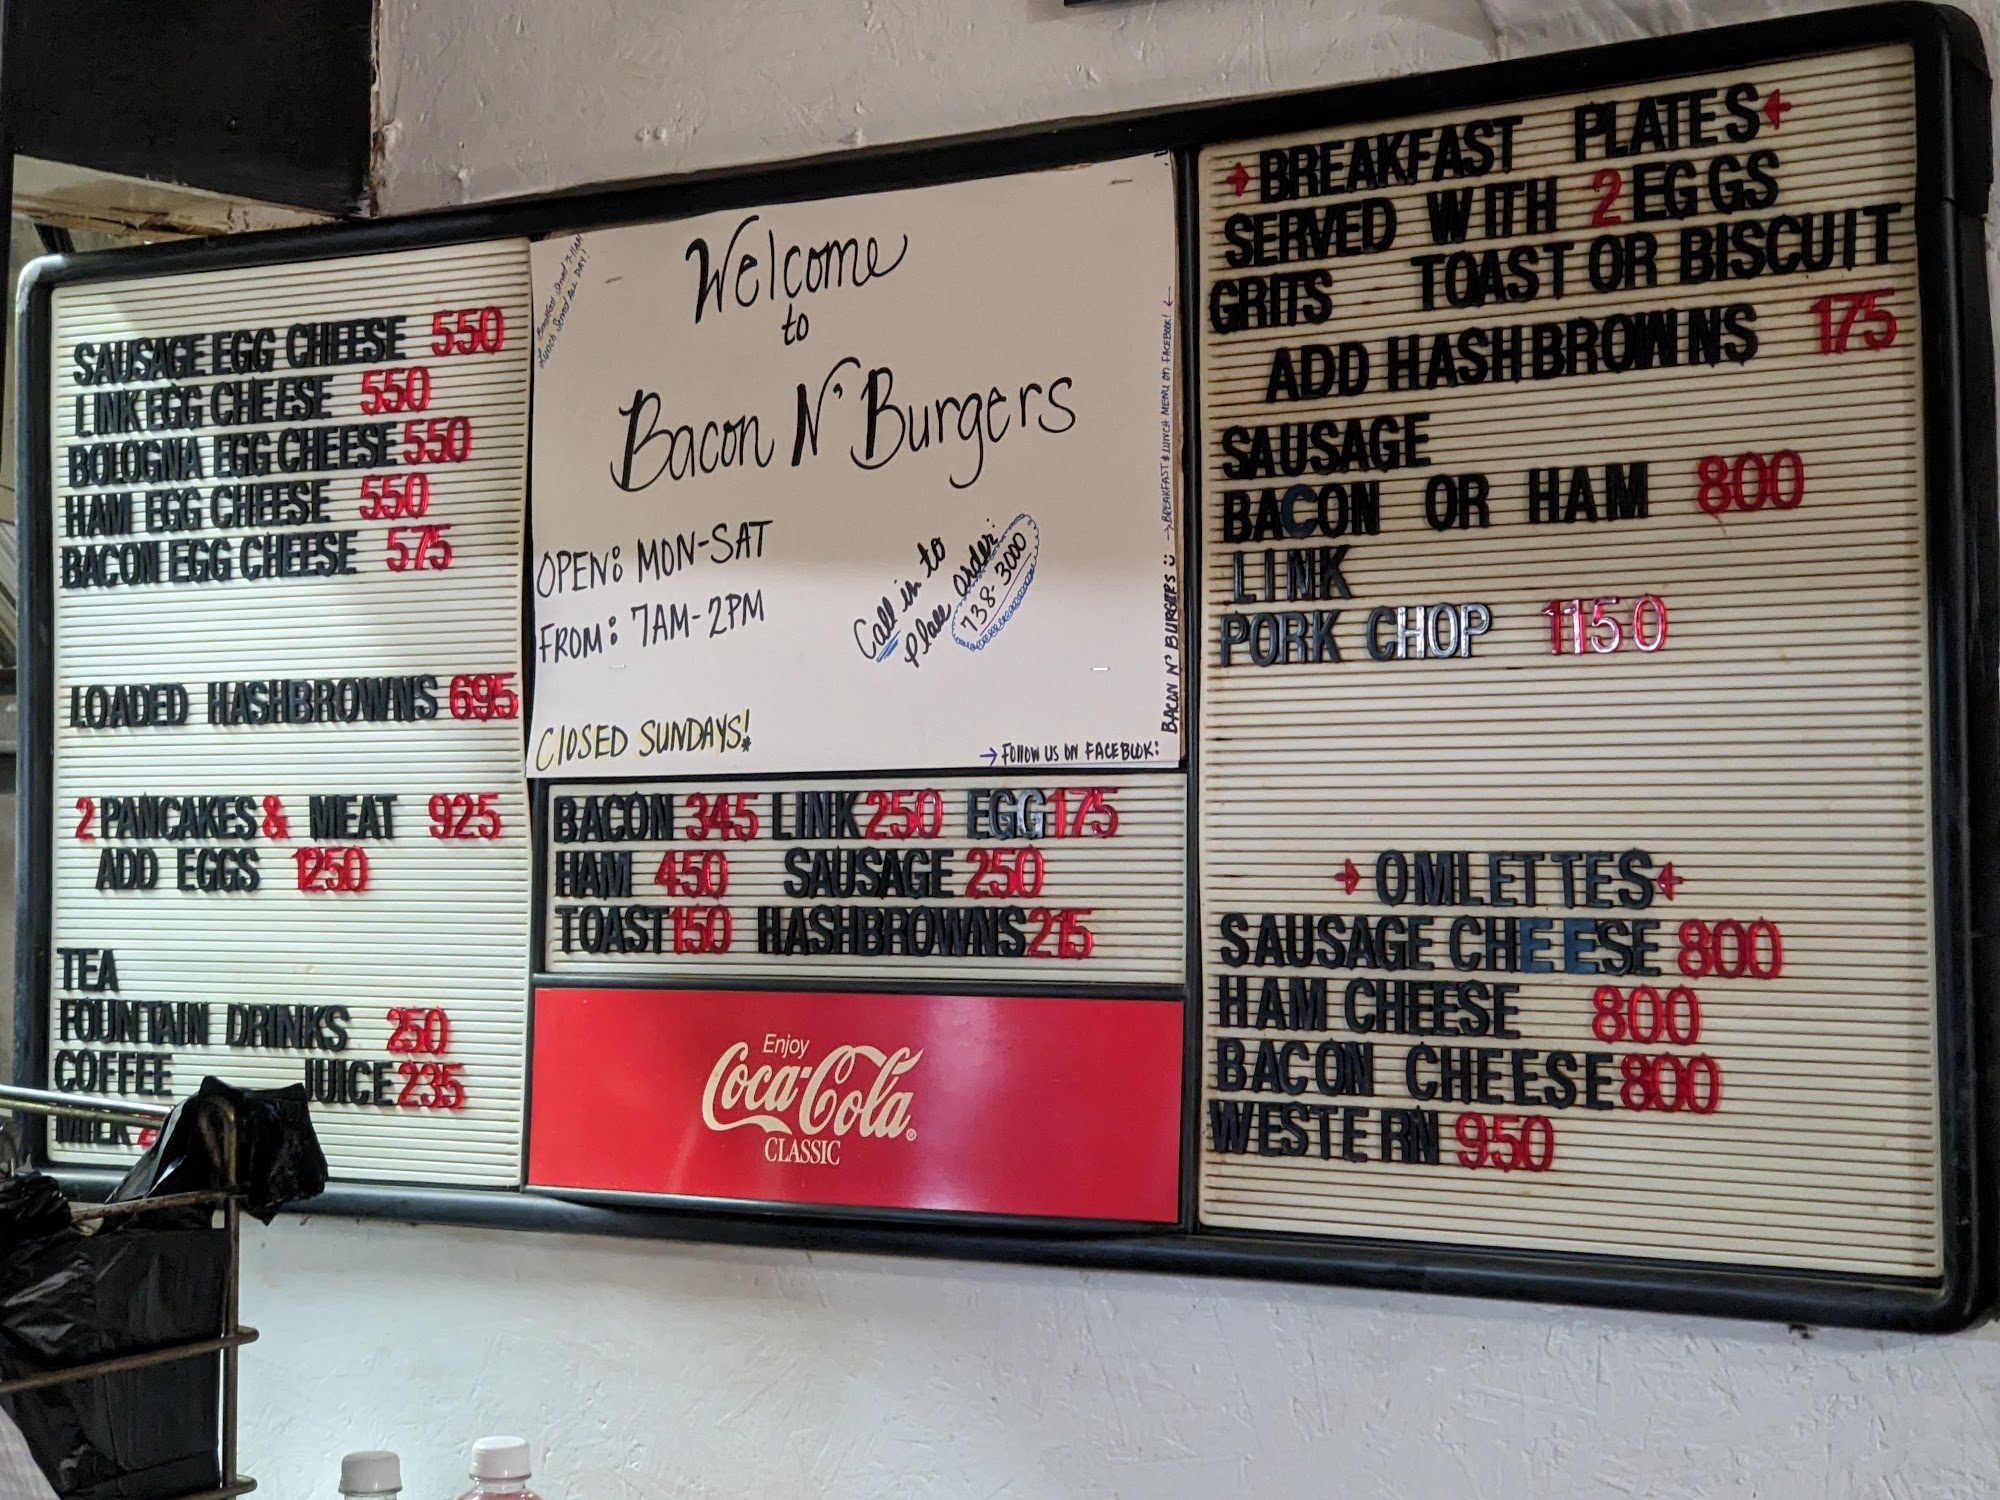 SAUSAGE EGG CHEESE 550
LINK EGG CHEESE 550
BOLOGNA EGG CHEESE 550
HAM EGG CHEESE 550
BACON EGG CHEESE 575
LOADED HASHBROWNS 695
2 PANCAKES & MEAT 925
ADD EGGS 1250
TEA
FOUNTAIN DRINKS 250
COFFEE JUICE 235
MILK
Breakfast Served 7-11AM
Lunch Served ALL DAY!
Welcome
to
Bacon N' Burgers
OPEN: MON-SAT
FROM: 7AM-2PM
Call in to
place order:
738-3000
CLOSED SUNDAYS!
→ FOLLOW US ON FACEBOOK:
BACON N' BURGERS :) → BREAKFAST & LUNCH MENU ON FACEBOOK! ←
BACON 345 LINK 250 EGG 175
HAM 450 SAUSAGE 250
TOAST 150 HASHBROWNS 215
Enjoy
Coca-Cola
CLASSIC
→BREAKFAST PLATES←
SERVED WITH 2 EGGS
GRITS TOAST OR BISCUIT
ADD HASHBROWNS 175
SAUSAGE
BACON OR HAM 800
LINK
PORK CHOP 1150
→OMLETTES←
SAUSAGE CHEESE 800
HAM CHEESE 800
BACON CHEESE 800
WESTERN 950